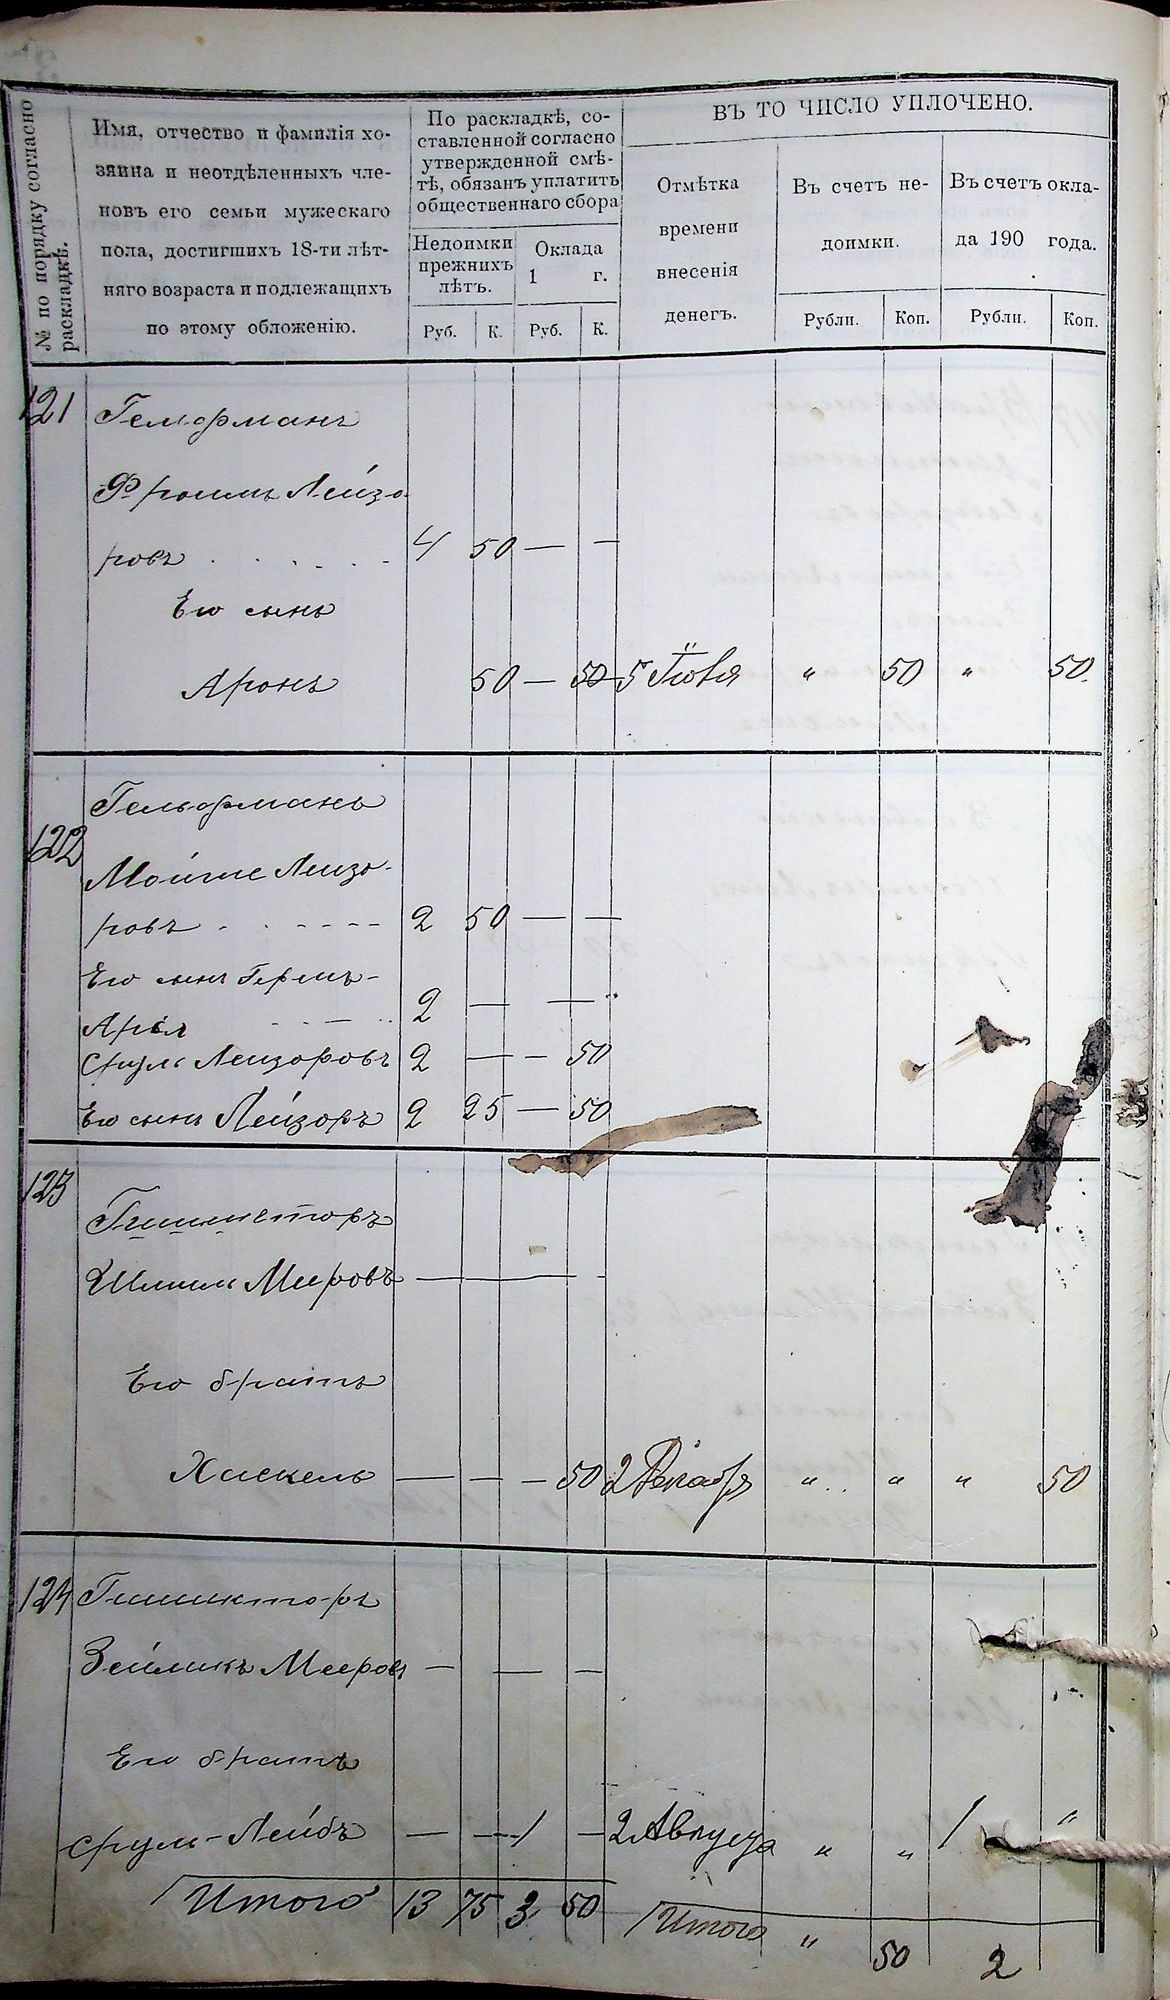 № по порядку согласно раскладкѣ.
Имя, отчество и фамилія хо-
зяина и неотдѣленныхъ чле-
новъ его семьи мужескаго
пола, достигшихъ 18-ти лѣт-
няго возраста и подлежащихъ
по этому обложенію.
По раскладкѣ, со-
ставленной согласно
утвержденной смѣ-
тѣ, обязанъ уплатить
общественнаго сбора
Недоимки прежнихъ лѣтъ.
Оклада 1 г.
Руб. К. Руб. К.
ВЪ ТО ЧИСЛО УПЛОЧЕНО.
Отмѣтка
времени
внесенія
денегъ.
Въ счетъ не-
доимки.
Рубли. Коп.
Въ счетъ окла-
да 190 года.
Рубли. Коп.
121 Гельфманъ
Фроимъ Лейзо-
ровъ 4 50 — —
Его сынъ
Аронъ 50 — 50 5 Іюня " 50 " 50
122 Гельфманъ
Мойше Лейзо-
ровъ 2 50 — —
Его сынъ Гершъ-
2 — —
Сруль Лейзоровъ 2 — — 50
Его сынъ Лейзоръ 2 25 — 50
123
Мееровъ — — —
Его братъ
Хаскель — — — 50 2 Декабря " " " 50
124
Зейликъ Мееровъ — — —
Его братъ
Сруль-Лейбъ — — 1 — 2 Августа " " 1 "
Итого 13 75 3 50 Итого " 50 2